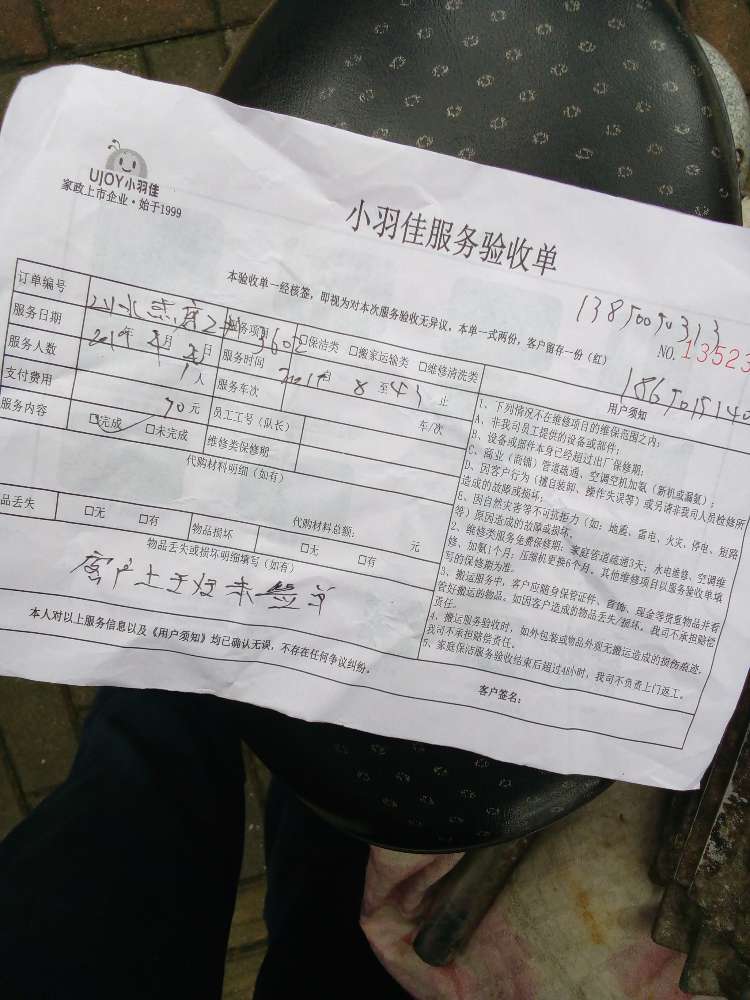 UJOY小羽佳
家政上市企业·始于1999
小羽佳服务验收单
本验收单一经核签，即视为对本次服务验收无异议，本单一式两份，客户留存一份（红）
13850050313
NO.13523
订单编号
服务项目 □保洁类 □搬家运输类 □维修清洗类
用户须知
服务日期 年 月 日 服务时间 至 止
服务人数 1人 服务车次 车/次
支付费用 90元 员工工号（队长）
服务内容 ☑完成 □未完成 维修类保修期
代购材料明细（如有）
代购材料总额： 元
品丢失 □无 □有 物品损坏 □无 □有
物品丢失或损坏明细填写（如有）
客户 未签单
1、下列情况不在维修项目的维保范围之内：
A、非我司员工提供的设备或部件；
B、设备或部件本身已经超过出厂保修期；
C、商业（店铺）管道疏通、空调空机加氨（新机或漏氨）；
D、因客户行为（擅自装卸、操作失误等）或另请非我司人员检修所
造成的故障或损坏；
E、因自然灾害等不可抗拒力（如：地震、雷电、火灾、停电、短路
等）原因造成的故障或损坏。
2、维修类服务免费保修期：家庭管道疏通3天，水电维修、空调维
修、加氨1个月；压缩机更换6个月。其他维修项目以服务验收单填
写的保修期为准。
3、搬运服务中，客户应随身保管证件、首饰、现金等贵重物品并看
管好搬运的物品。如因客户造成的物品丢失/损坏，我司不承担赔偿
责任。
4、搬运服务验收时，如外包装或物品外观无搬运造成的损伤痕迹，
我司不承担赔偿责任。
5、家庭保洁服务验收结束后超过48小时，我司不负责上门返工。
本人对以上服务信息以及《用户须知》均已确认无误，不存在任何争议纠纷。
客户签名：